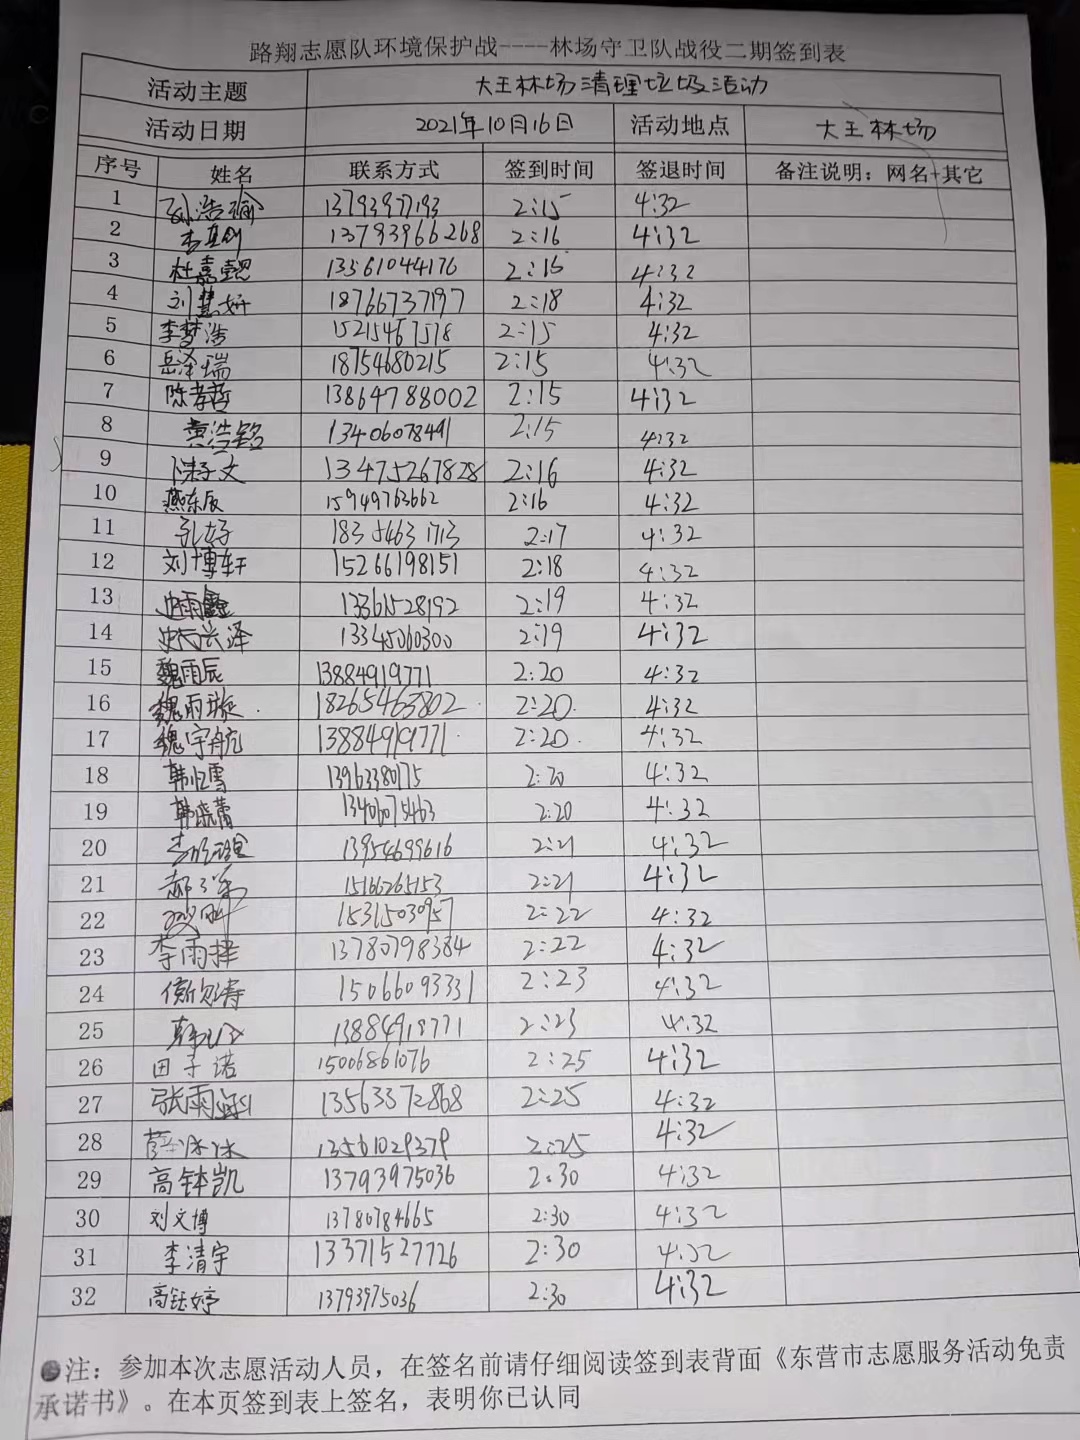 路翔志愿队环境保护战----林场守卫队战役二期签到表
活动主题 大王林场清理垃圾活动
活动日期 2021年10月16日 活动地点 大王林场
序号 姓名 联系方式 签到时间 签退时间 备注说明：网名+其它
1 孙浩瑜 13793977193 2:15 4:32
2 13793966268 2:16 4:32
3 杜嘉懿 13561044176 2:15 4:32
4 刘慧妍 18766737197 2:18 4:32
5 李梦浩 15215467578 2:15 4:32
6 岳泽瑞 18754680215 2:15 4:32
7 陈孝哲 13864788002 2:15 4:32
8 黄浩铭 13406078491 2:15 4:32
9 13475267828 2:16 4:32
10 燕东辰 15949763662 2:16 4:32
11 孔好 18354631713 2:17 4:32
12 刘博轩 15266198151 2:18 4:32
13 雨鑫 13361528192 2:19 4:32
14 兴泽 13345060300 2:19 4:32
15 魏雨辰 13884919771 2:20 4:32
16 魏雨璇 18265463802 2:20 4:32
17 魏宇航 13884919771 2:20 4:32
18 韩恒雪 13963380175 2:20 4:32
19 韩晓蕾 13406075463 2:20 4:32
20 13954699616 2:21 4:32
21 郝 15166265153 2:21 4:32
22 15315030957 2:22 4:32
23 李雨择 13780798384 2:22 4:32
24 15066093331 2:23 4:32
25 13884918771 2:23 4:32
26 田子诺 15006861076 2:25 4:32
27 张雨涵 13563372868 2:25 4:32
28 薛冰冰 13561029379 2:25 4:32
29 高钵凯 13793975036 2:30 4:32
30 刘文博 13780784665 2:30 4:32
31 李清宇 13371527726 2:30 4:32
32 高钰婷 13793975036 2:30 4:32
●注：参加本次志愿活动人员，在签名前请仔细阅读签到表背面《东营市志愿服务活动免责
承诺书》。在本页签到表上签名，表明你已认同